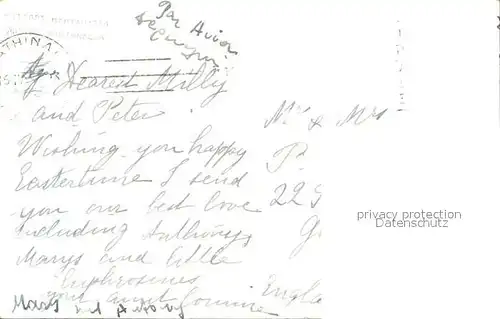 ATHINA
Par Avion
My Dearest Milly
and Peter
Wishing you happy
Eastertime I send
you our best love
including Anthony,
Marys and little
Euphrosines
your aunt
Mary and
Mr & Mrs
P
229
G
Engla
privacy protection
Datenschutz